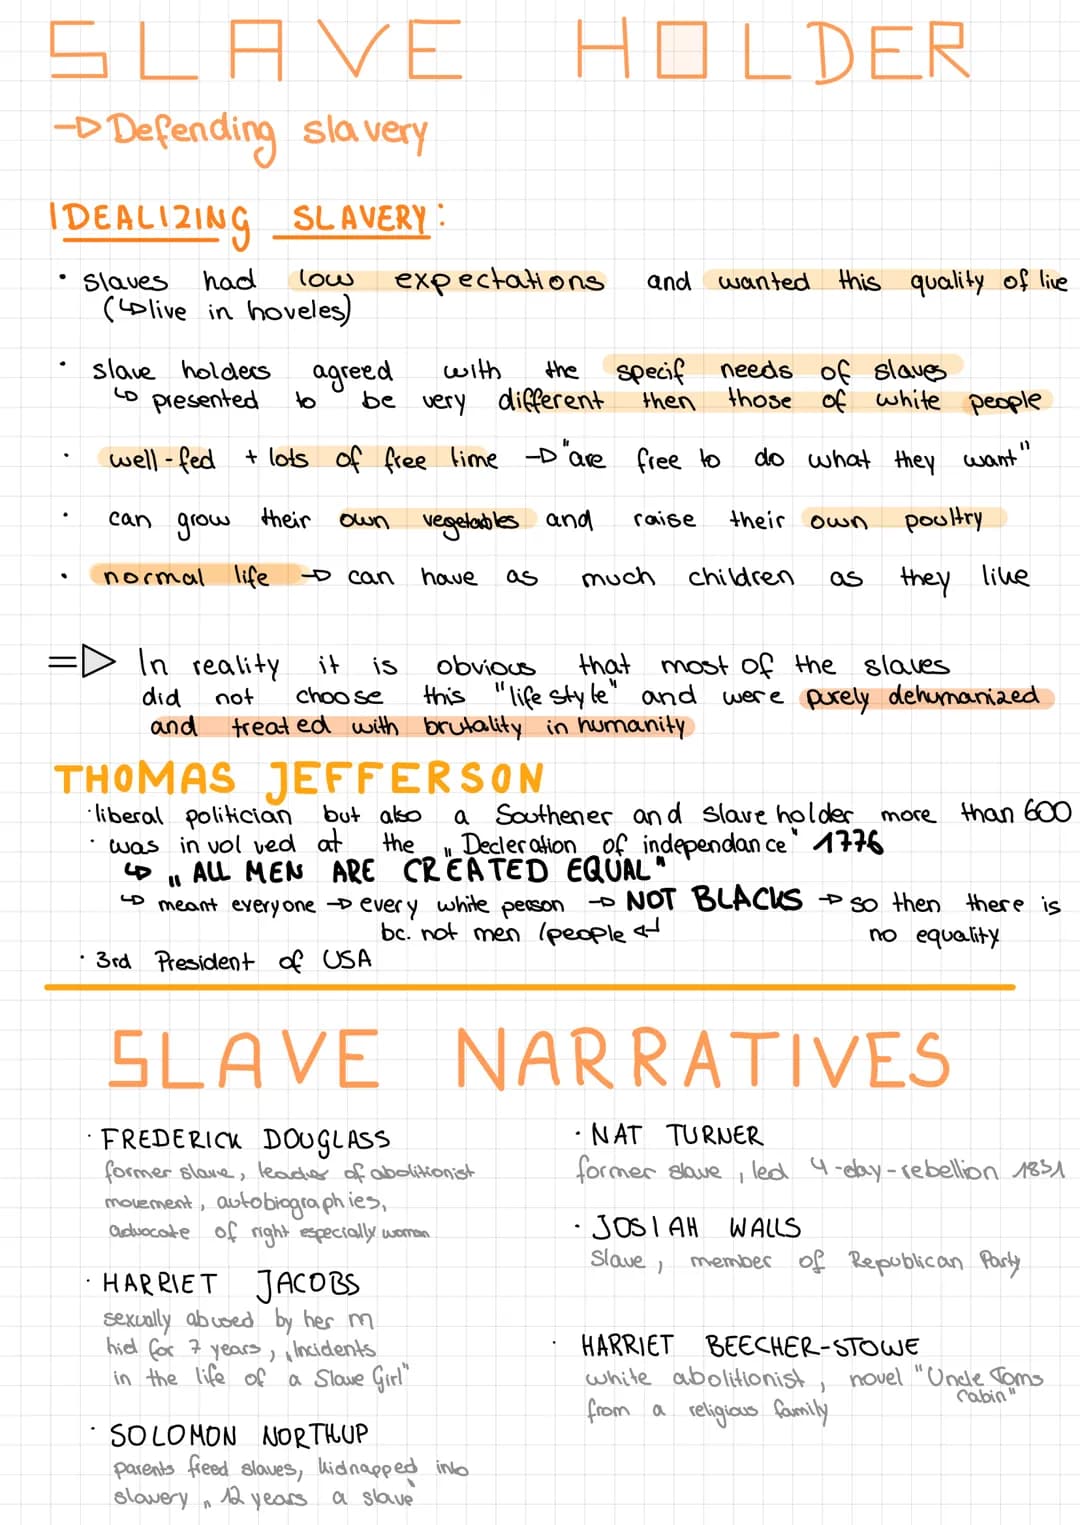 SLAVE HOLDER
→ Defending slavery
IDEALIZING SLAVERY:
· slaves had low expectations and wanted this quality of live
(↳ live in hoveles)
· slave holders agreed with the specif needs of slaves
↳ presented to be very different then those of white people
· well-fed + lots of free time → "are free to do what they want"
· can grow their own vegetables and raise their own poultry
· normal life → can have as much children as they like
⇒ In reality it is obvious that most of the slaves
did not choose this "life style" and were purely dehumanized
and treated with brutality in humanity
THOMAS JEFFERSON
· liberal politician but also a Southener and slave holder more than 600
· was involved at the „Decleration of independance" 1776
↳ „ALL MEN ARE CREATED EQUAL"
↳ meant everyone → every white person → NOT BLACKS → so then there is
bc. not men / people ↲ no equality
· 3rd President of USA
SLAVE NARRATIVES
· FREDERICK DOUGLASS
former slave, leader of abolitionist
movement, autobiographies,
advocate of right especially woman
· HARRIET JACOBS
sexually abused by her m
hid for 7 years, „Incidents
in the life of a Slave Girl"
· SOLOMON NORTHUP
parents freed slaves, kidnapped into
slavery „12 years a slave"
· NAT TURNER
former slave, led 4-day-rebellion 1831
· JOSIAH WALLS
Slave, member of Republican Party
· HARRIET BEECHER-STOWE
white abolitionist, novel "Uncle Toms
Cabin"
from a religious family